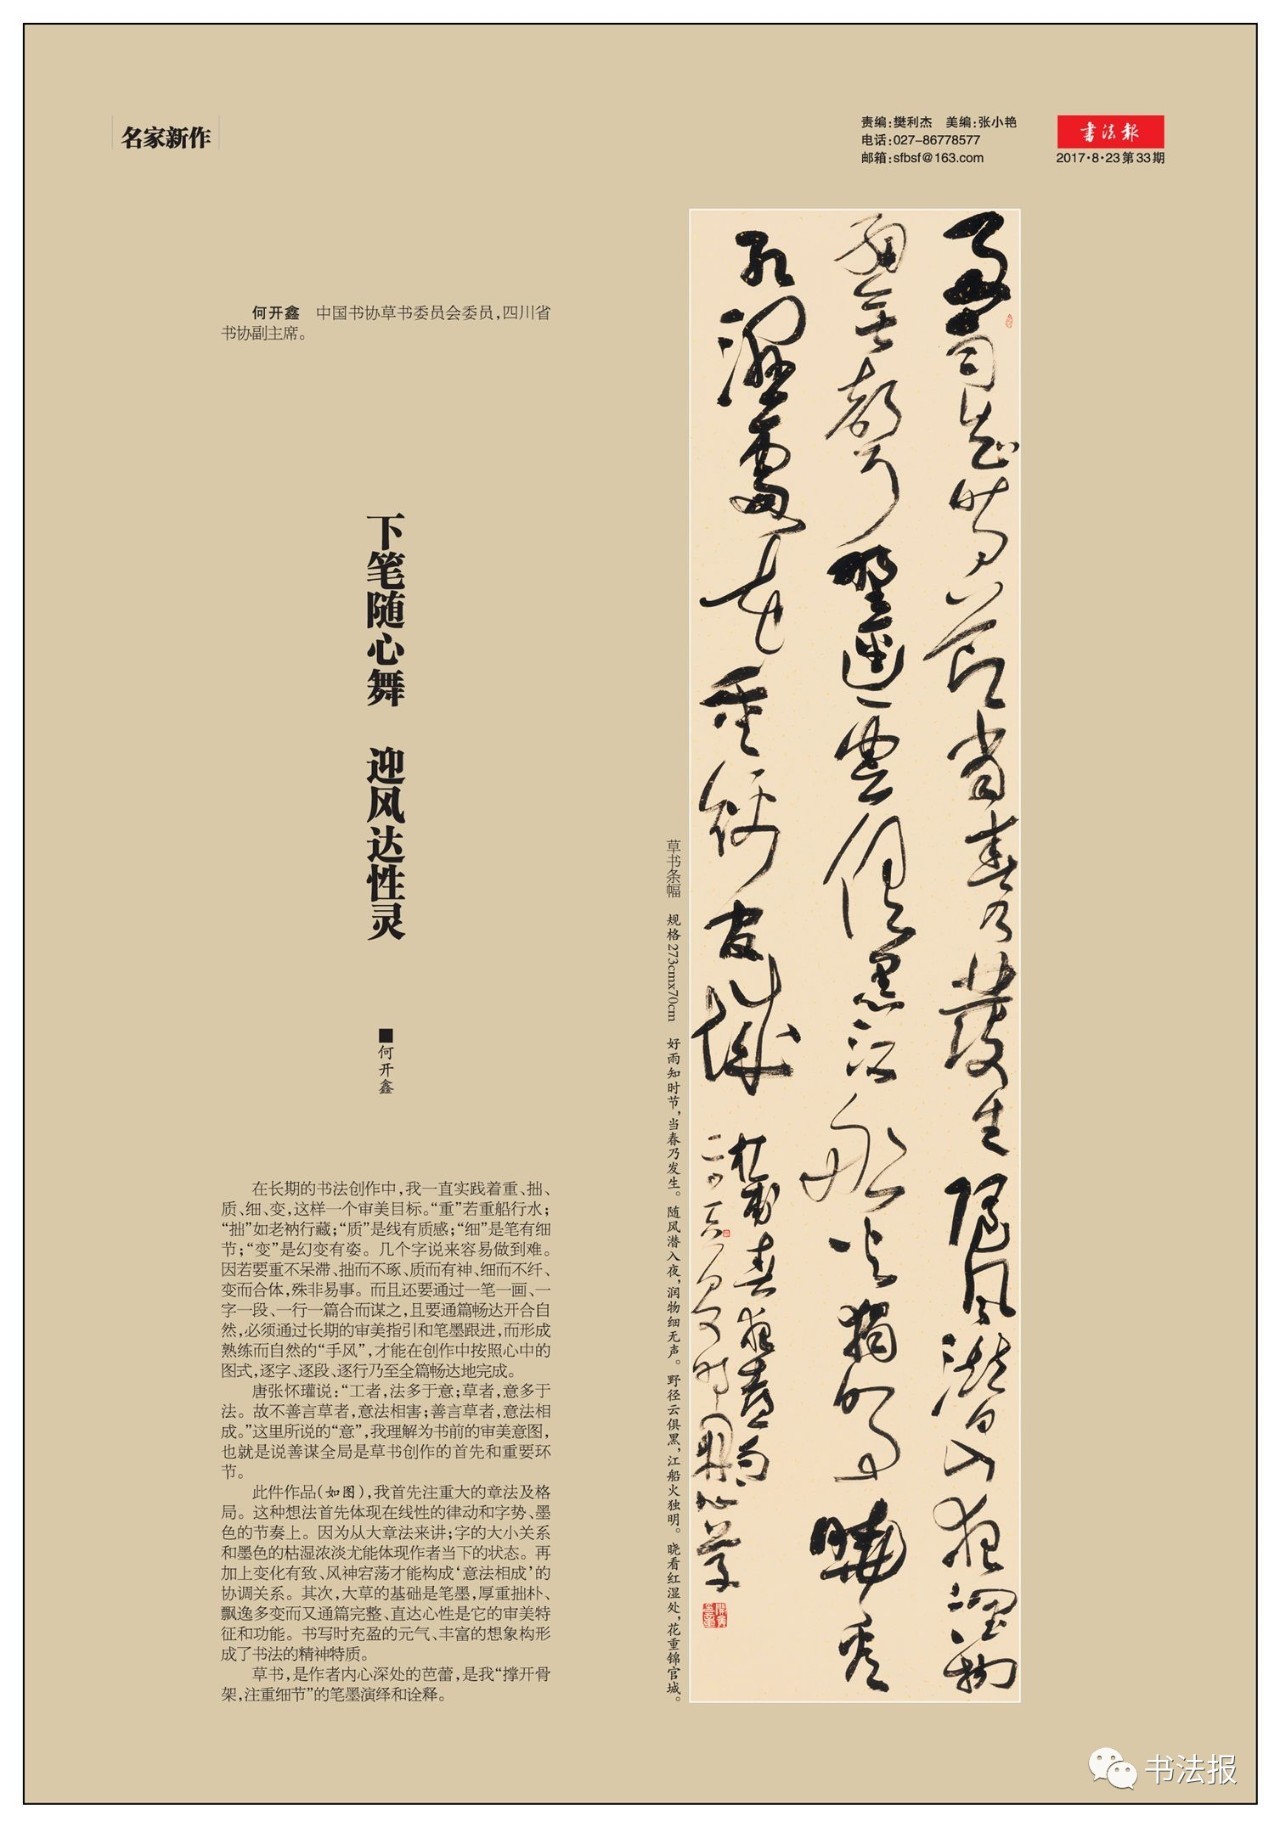 名家新作
责编:樊利杰　美编:张小艳
电话:027-86778577
邮箱:sfbsf@163.com
书法報
2017·8·23第33期
何开鑫　中国书协草书委员会委员,四川省
书协副主席。
下笔随心舞　迎风达性灵
■何开鑫
在长期的书法创作中,我一直实践着重、拙、
质、细、变,这样一个审美目标。“重”若重船行水;
“拙”如老衲行藏;“质”是线有质感;“细”是笔有细
节;“变”是幻变有姿。几个字说来容易做到难。
因若要重不呆滞、拙而不琢、质而有神、细而不纤、
变而合体,殊非易事。而且还要通过一笔一画、一
字一段、一行一篇合而谋之,且要通篇畅达开合自
然,必须通过长期的审美指引和笔墨跟进,而形成
熟练而自然的“手风”,才能在创作中按照心中的
图式,逐字、逐段、逐行乃至全篇畅达地完成。
唐张怀瓘说:“工者,法多于意;草者,意多于
法。故不善言草者,意法相害;善言草者,意法相
成。”这里所说的“意”,我理解为书前的审美意图,
也就是说善谋全局是草书创作的首先和重要环
节。
此件作品(如图),我首先注重大的章法及格
局。这种想法首先体现在线性的律动和字势、墨
色的节奏上。因为从大章法来讲;字的大小关系
和墨色的枯湿浓淡尤能体现作者当下的状态。再
加上变化有致、风神宕荡才能构成‘意法相成’的
协调关系。其次,大草的基础是笔墨,厚重拙朴、
飘逸多变而又通篇完整、直达心性是它的审美特
征和功能。书写时充盈的元气、丰富的想象构形
成了书法的精神特质。
草书,是作者内心深处的芭蕾,是我“撑开骨
架,注重细节”的笔墨演绎和诠释。
好雨知时节当春乃發生随風潜入夜潤物
細無聲野逕雲俱黑江船火獨明曉看
紅濕處花重錦官城
杜甫春夜喜雨
草书条幅　规格273cmx70cm　好雨知时节,当春乃发生。随风潜入夜,润物细无声。野径云俱黑,江船火独明。晓看红湿处,花重锦官城。
书法报